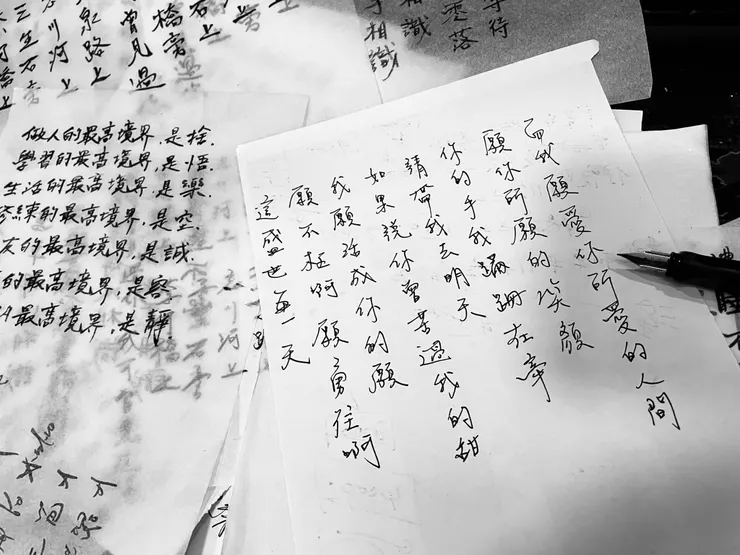 而我願愛你所愛的人間
願你所願的笑顏
你的手我蹣跚在牽
請帶我去明天
如果說你曾苦過我的甜
我願活成你的願
願不枉啊 願勇往啊
這盛世每一天
做人的最高境界,是捨.
學習的最高境界,是悟.
生活的最高境界,是樂.
練的最高境界,是空.
友的最高境界,是誠.
的最高境界,是容.
最高境界,是靜.
等待
落
相識
相識
石上
橋旁
曾見過
泉路上
川河上
三生石旁